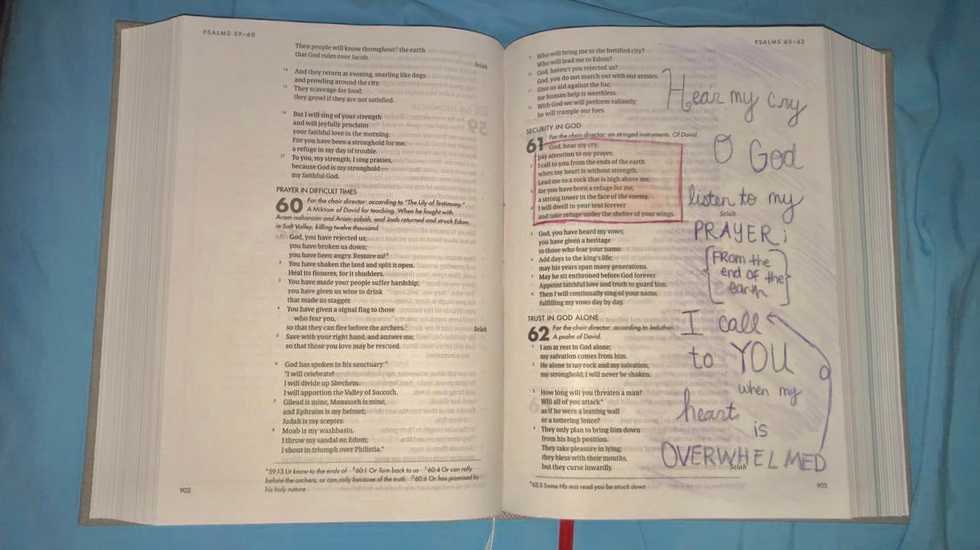 PSALMS 59–60
Then people will know throughout the earth
that God rules over Jacob.
Selah
14 And they return at evening, snarling like dogs
and prowling around the city.
15 They scavenge for food;
they growl if they are not satisfied.
16 But I will sing of your strength
and will joyfully proclaim
your faithful love in the morning.
For you have been a stronghold for me,
a refuge in my day of trouble.
17 To you, my strength, I sing praises,
because God is my stronghold—
my faithful God.
PRAYER IN DIFFICULT TIMES
60 For the choir director: according to "The Lily of Testimony."
A Miktam of David for teaching. When he fought with
Aram-naharaim and Aram-zobah, and Joab returned and struck Edom
in Salt Valley, killing twelve thousand.
God, you have rejected us;
you have broken us down;
you have been angry. Restore us!
2 You have shaken the land and split it open.
Heal its fissures, for it shudders.
3 You have made your people suffer hardship;
you have given us wine to drink
that made us stagger.
4 You have given a signal flag to those
who fear you,
so that they can flee before the archers.
Selah
5 Save with your right hand, and answer me,
so that those you love may be rescued.
6 God has spoken in his sanctuary:
"I will celebrate!
I will divide up Shechem.
I will apportion the Valley of Succoth.
7 Gilead is mine, Manasseh is mine,
and Ephraim is my helmet;
Judah is my scepter.
8 Moab is my washbasin.
I throw my sandal on Edom;
I shout in triumph over Philistia."
59:13 Lit know to the ends of 60:1 Or Turn back to us 60:4 Or can rally
before the archers, or can rally because of the truth 60:6 Or has promised by
his holy nature
902
PSALMS 60–62
9 Who will bring me to the fortified city?
Who will lead me to Edom?
10 God, haven't you rejected us?
God, you do not march out with our armies.
11 Give us aid against the foe,
for human help is worthless.
12 With God we will perform valiantly;
he will trample our foes.
SECURITY IN GOD
61 For the choir director: on stringed instruments. Of David.
God, hear my cry;
pay attention to my prayer.
2 I call to you from the ends of the earth
when my heart is without strength.
Lead me to a rock that is high above me,
3 for you have been a refuge for me,
a strong tower in the face of the enemy.
4 I will dwell in your tent forever
and take refuge under the shelter of your wings.
Selah
5 God, you have heard my vows;
you have given a heritage
to those who fear your name.
6 Add days to the king's life;
may his years span many generations.
7 May he sit enthroned before God forever.
Appoint faithful love and truth to guard him.
8 Then I will continually sing of your name,
fulfilling my vows day by day.
TRUST IN GOD ALONE
62 For the choir director: according to Jeduthun.
A psalm of David.
1 I am at rest in God alone;
my salvation comes from him.
2 He alone is my rock and my salvation,
my stronghold; I will never be shaken.
3 How long will you threaten a man?
Will all of you attack
as if he were a leaning wall
or a tottering fence?
4 They only plan to bring him down
from his high position.
They take pleasure in lying;
they bless with their mouths,
but they curse inwardly.
Selah
62:3 Some Hb mss read you be struck down
903
Hear my cry
O God
listen to my
PRAYER;
FROM the
end of the
earth
I call
to YOU
when my
heart
is
OVERWHELMED